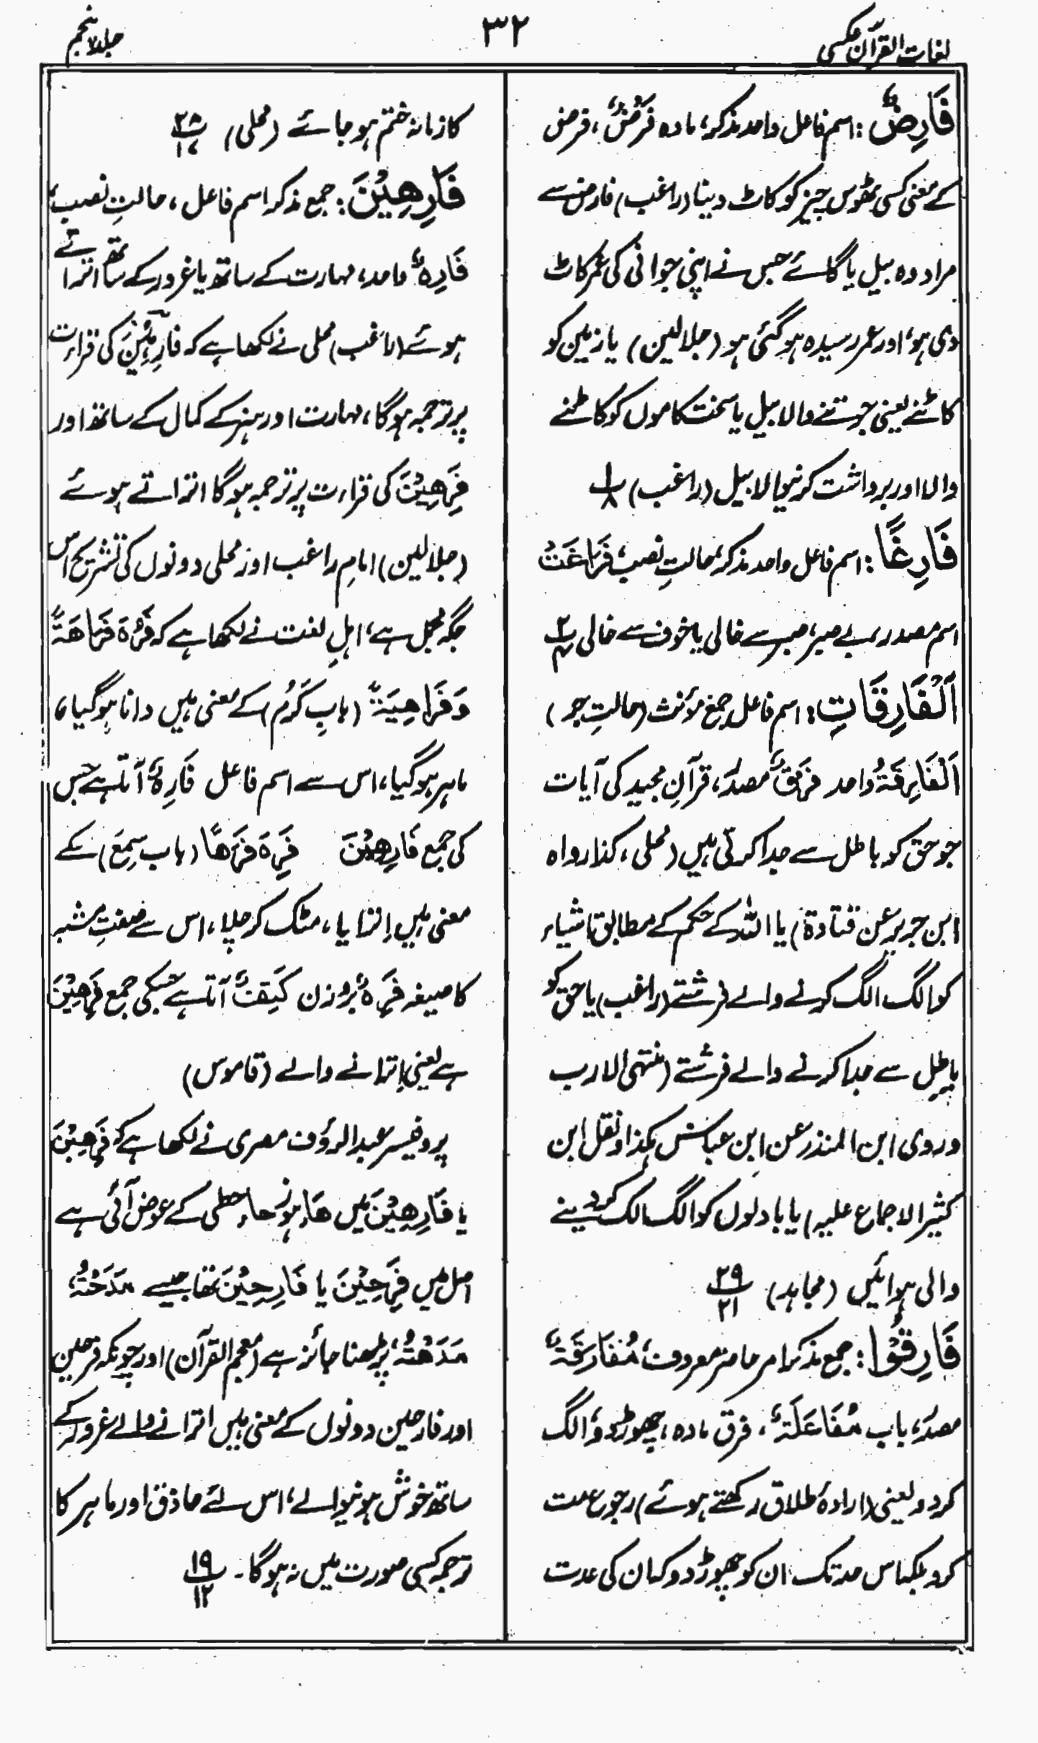 لغات القرآن عکسی
۳۲
جلد پنجم
فَارِضٌ: اسم فاعل واحد مذکر، مادہ فَرْضٌ، فرض
کے معنی کسی ٹھوس چیز کو کاٹ دینا (راغب) فارض سے
مراد وہ بیل یا گائے جس نے اپنی جوانی کی عمر کاٹ
دی ہو، اور عمر رسیدہ ہوگئی ہو (جلالین) یا زمین کو
کاٹنے یعنی جوتنے والا بیل یا سخت کاموں کو کاٹنے
والا اور برداشت کرنیوالا بیل (راغب) ۱/۸
فَارِغًا: اسم فاعل واحد مذکر، حالتِ نصب، فَرَاغَتٌ
اسم مصدر، بے صبر، صبر سے خالی یا خوف سے خالی ۲۰/۴
اَلْفَارِقَاتِ: اسم فاعل جمع مؤنث (حالتِ جر)
اَلْفَارِقَةُ واحد فَرْقٌ مصدر، قرآنِ مجید کی آیات
جو حق کو باطل سے جدا کرتی ہیں (محلی، کذا رواہ
ابن جریر عن قتادۃ) یا اللہ کے حکم کے مطابق اشیاء
کو الگ الگ کرنے والے فرشتے (راغب) یا حق کو
باطل سے جدا کرنے والے فرشتے (منتہی الارب
وروی ابن المنذر عن ابن عباس ہکذا ونقل ابن
کثیر الاجماع علیہ) یا بادلوں کو الگ الگ کر دینے
والی ہوائیں (مجاہد) ۲۹/۲۱
فَارِقُوْا: جمع مذکر امر حاضر معروف، مُفَارَقَةٌ
مصدر، باب مُفَاعَلَةٌ، فرق مادہ، چھوڑ دو، الگ
کردو یعنی (ارادۂ طلاق رکھتے ہوئے) رجوع مت
کرو بلکہ اس حد تک ان کو چھوڑ دو کہ ان کی عدت
کا زمانہ ختم ہو جائے (محلی) ۲۸/۱۷
فَارِهِيْنَ: جمع مذکر اسم فاعل، حالتِ نصب،
فَارِہٌ واحد، مہارت کے ساتھ یا غرور کے ساتھ اتراتے
ہوئے (راغب) محلی نے لکھا ہے کہ فَارِهِيْنَ کی قراءت
پر ترجمہ ہوگا، مہارت اور ہنر کے کمال کے ساتھ اور
فَرِهِيْنَ کی قراءت پر ترجمہ ہوگا اتراتے ہوئے
(جلالین) امام راغب اور محلی دونوں کی تشریح اس
جگہ مجمل ہے، اہلِ لغت نے لکھا ہے کہ فَرُہَ فَرَاهَةً
وَفَرَاهِيَةً (باب کَرُم) کے معنی ہیں دانا ہوگیا،
ماہر ہوگیا، اس سے اسم فاعل فَارِہٌ آتا ہے جس
کی جمع فَارِهِيْنَ فَرِہَ فَرَهًا (باب سَمِعَ) کے
معنی ہیں اِترایا، مٹک کر چلا، اس سے صفتِ مشبہ
کا صیغہ فَرِہٌ بروزن کَتِفٌ آتا ہے جسکی جمع فَرِهِيْنَ
ہے یعنی اِترانے والے (قاموس)
پروفیسر عبد الرؤف مصری نے لکھا ہے کہ فَرِهِيْنَ
یا فَارِهِيْنَ میں ھاء ہوز حاء حطی کے عوض آئی ہے
اصل میں فَرِحِيْنَ یا فَارِحِيْنَ تھا جیسے مَدَحْتُهٗ،
مَدَهْتُهٗ، پڑھنا جائز ہے (معجم القرآن) اور چونکہ فرحین
اور فارحین دونوں کے معنی ہیں اترانے والے غرور کے
ساتھ خوش ہونیوالے، اس لئے حاذق اور ماہر کا
ترجمہ کسی صورت میں نہ ہوگا۔ ۱۹/۱۲